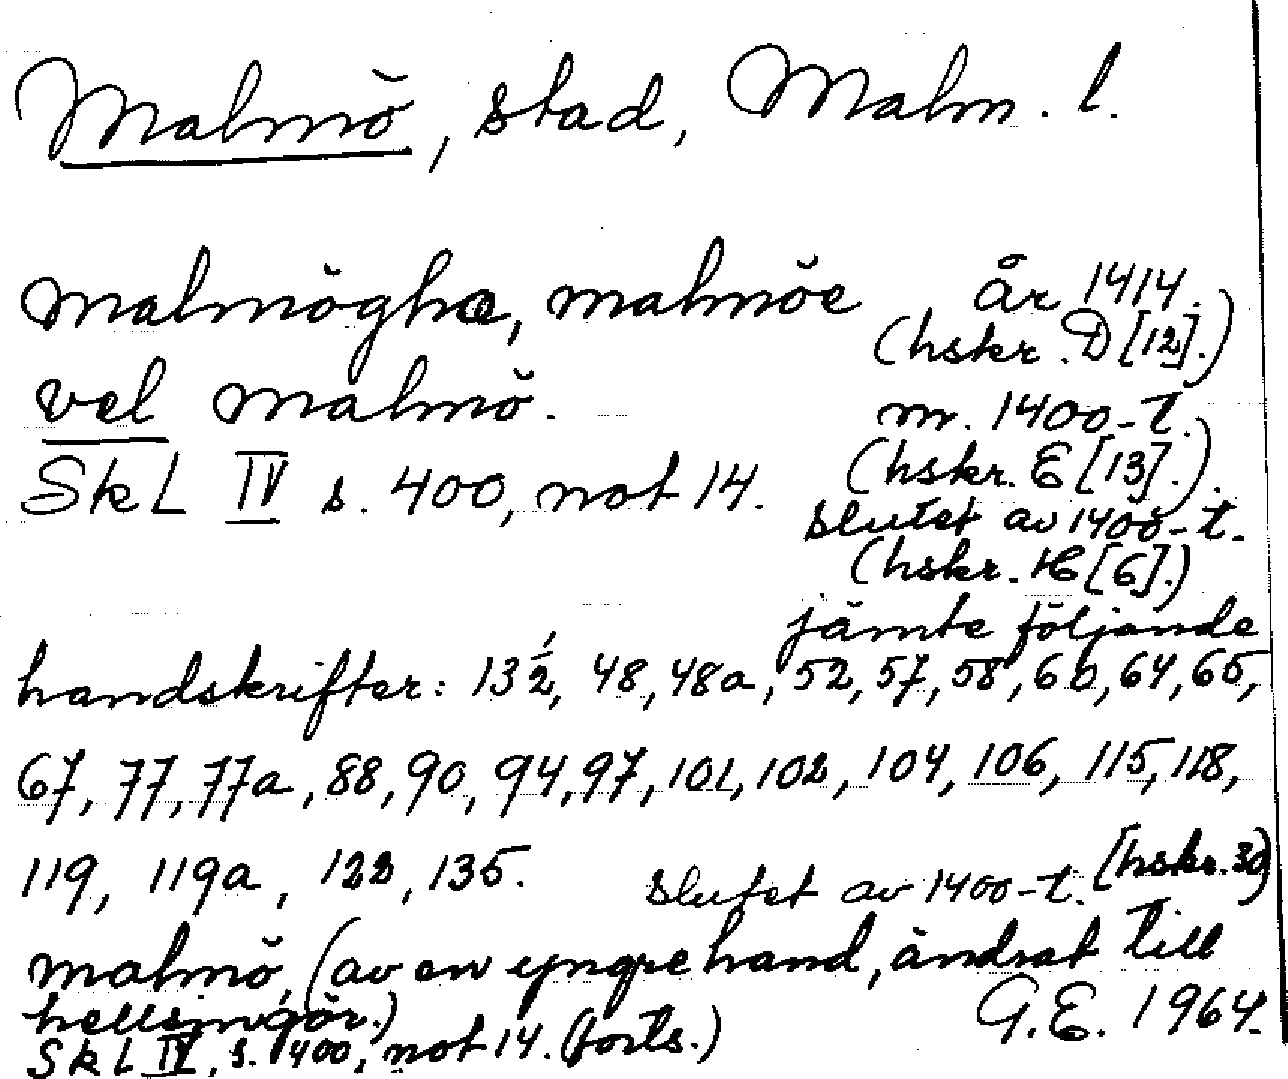 Malmö, stad, Malm. l.
malmöghæ, malmöe år 1414.
(hskr. D [12].)
vel malmö. m. 1400-t.
SkL IV s. 400, not 14. (hskr. E [13].)
slutet av 1400-t.
(hskr. H [6].)
jämte följande
handskrifter: 13½, 48, 48a, 52, 57, 58, 60, 64, 65,
67, 77, 77a, 88, 90, 94, 97, 101, 102, 104, 106, 115, 118,
119, 119a, 122, 135. slutet av 1400-t. [hskr. 39]
malmö, (av en yngre hand, ändrat till
hellsingör.) G.E. 1964.
SkL IV, s. 400, not 14. (forts.)